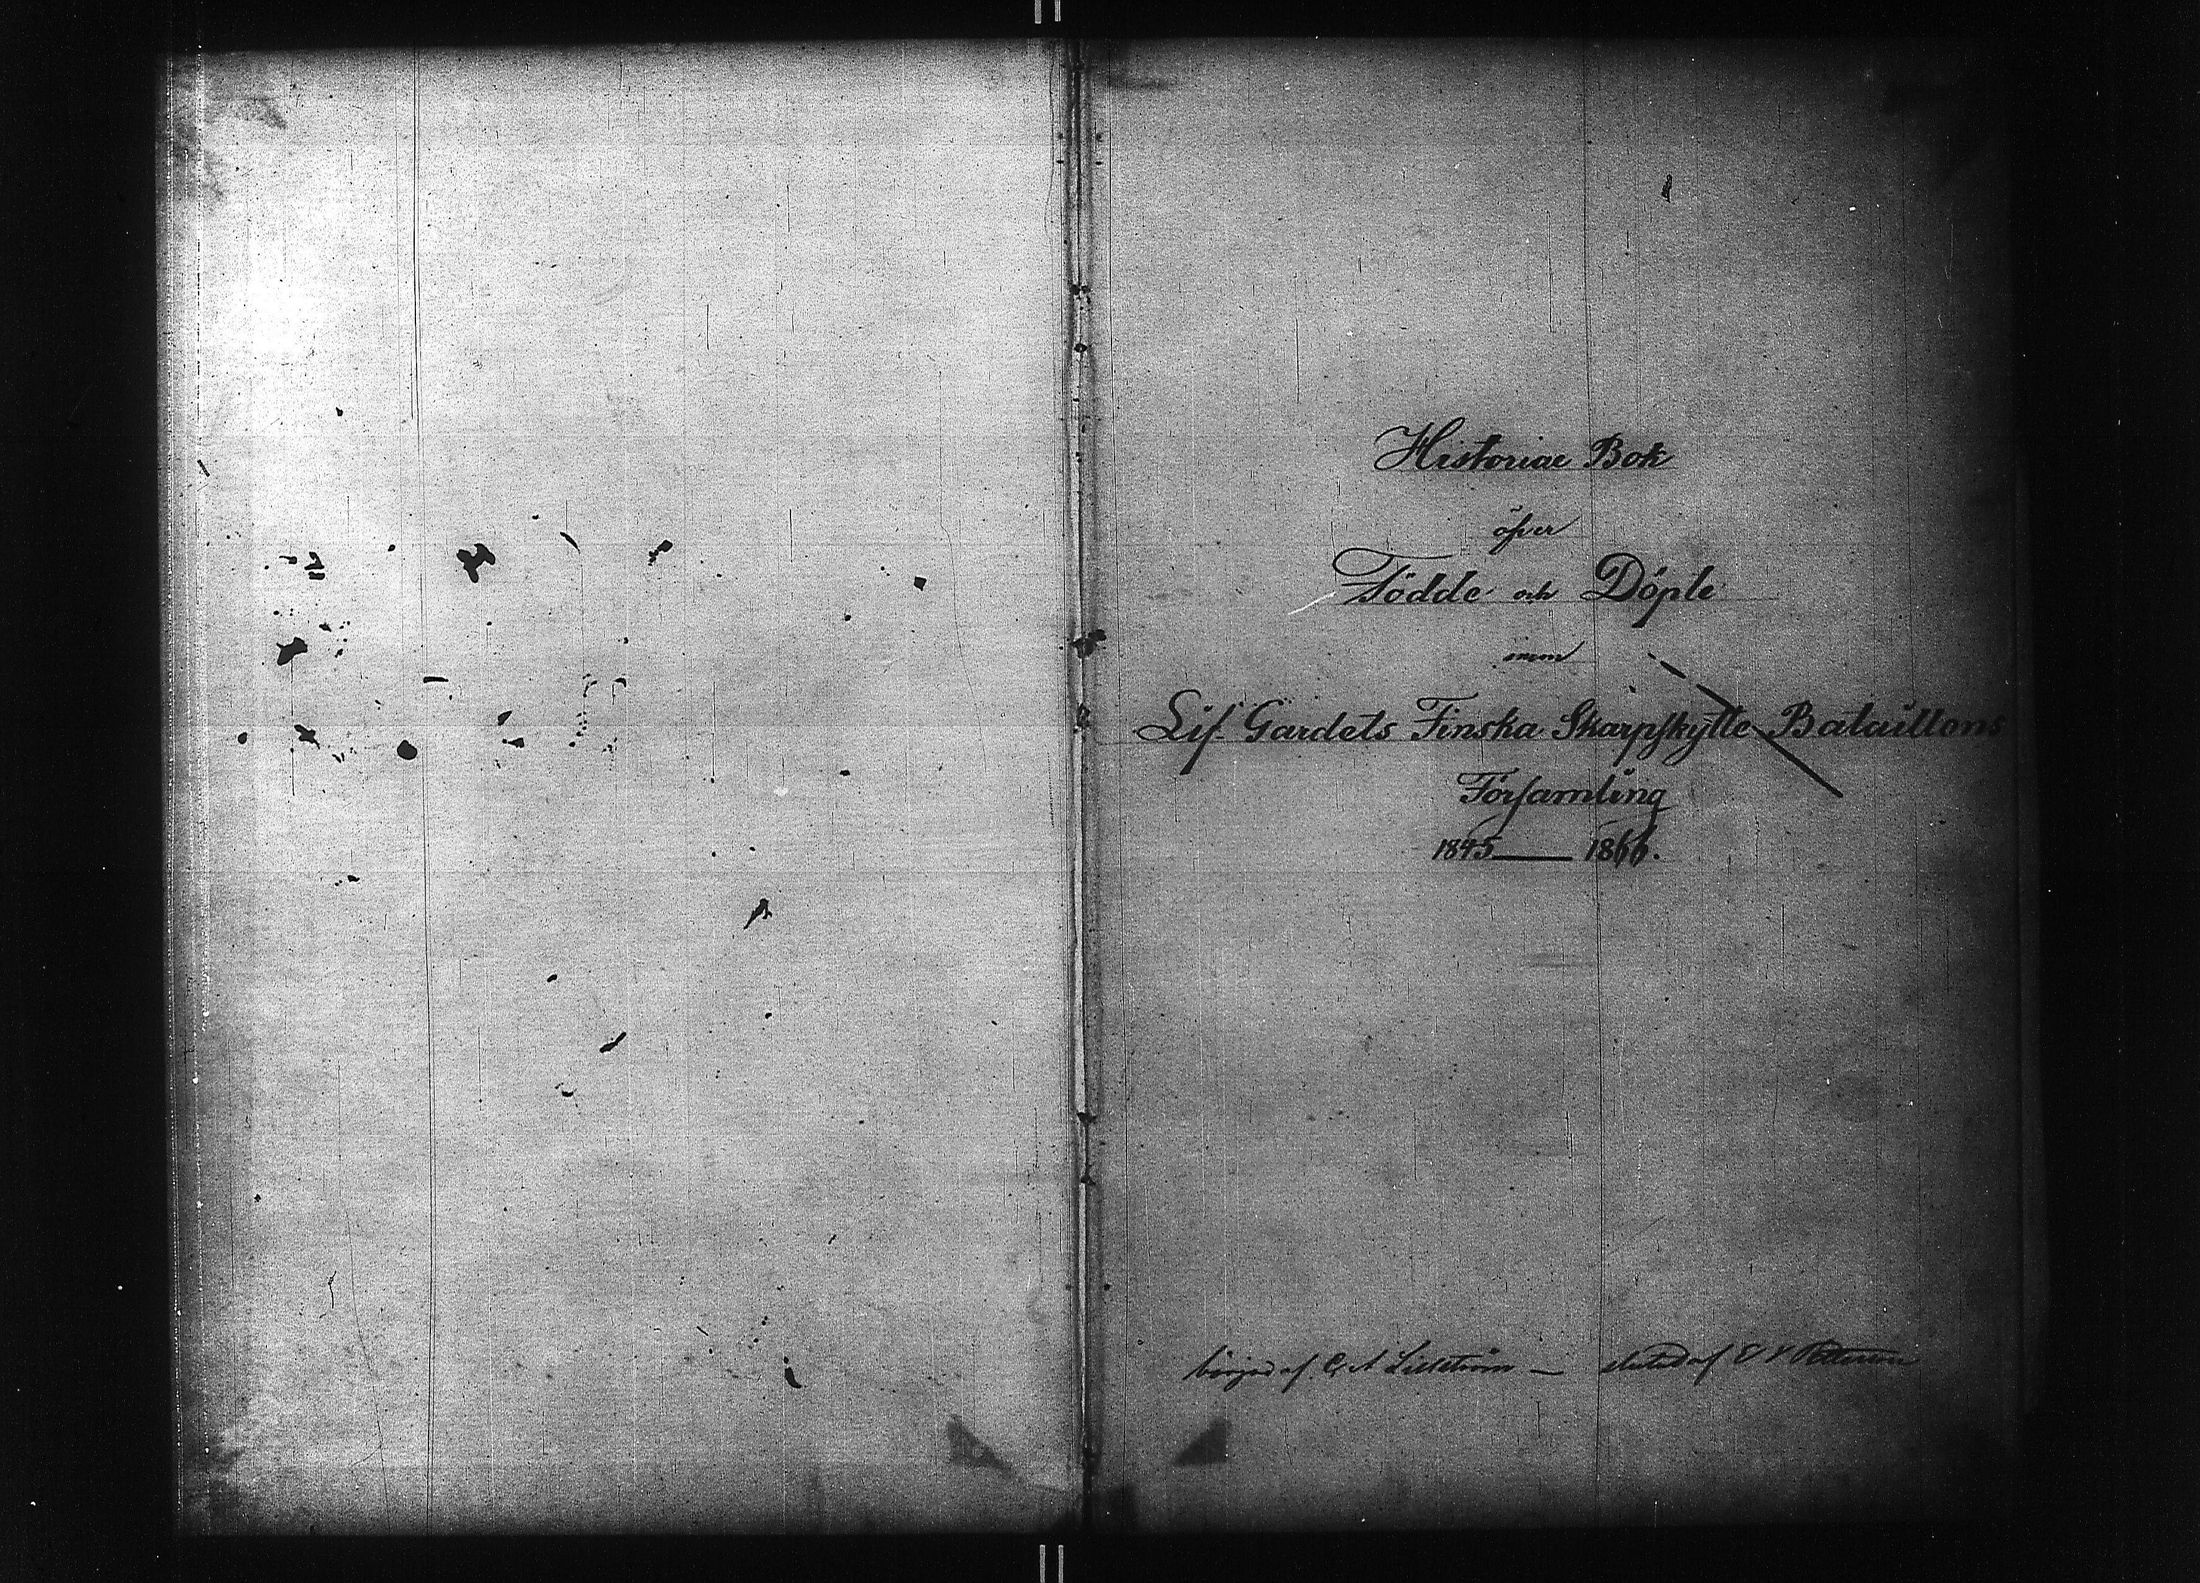 Historiae Bok
öfver
Födde och Döpte
inom
Lif-Gardets Finska Skarpskytte Bataillons
Församling
1845 — 1866.
börjad af C. A. Lillström — slutad af E V Petterson